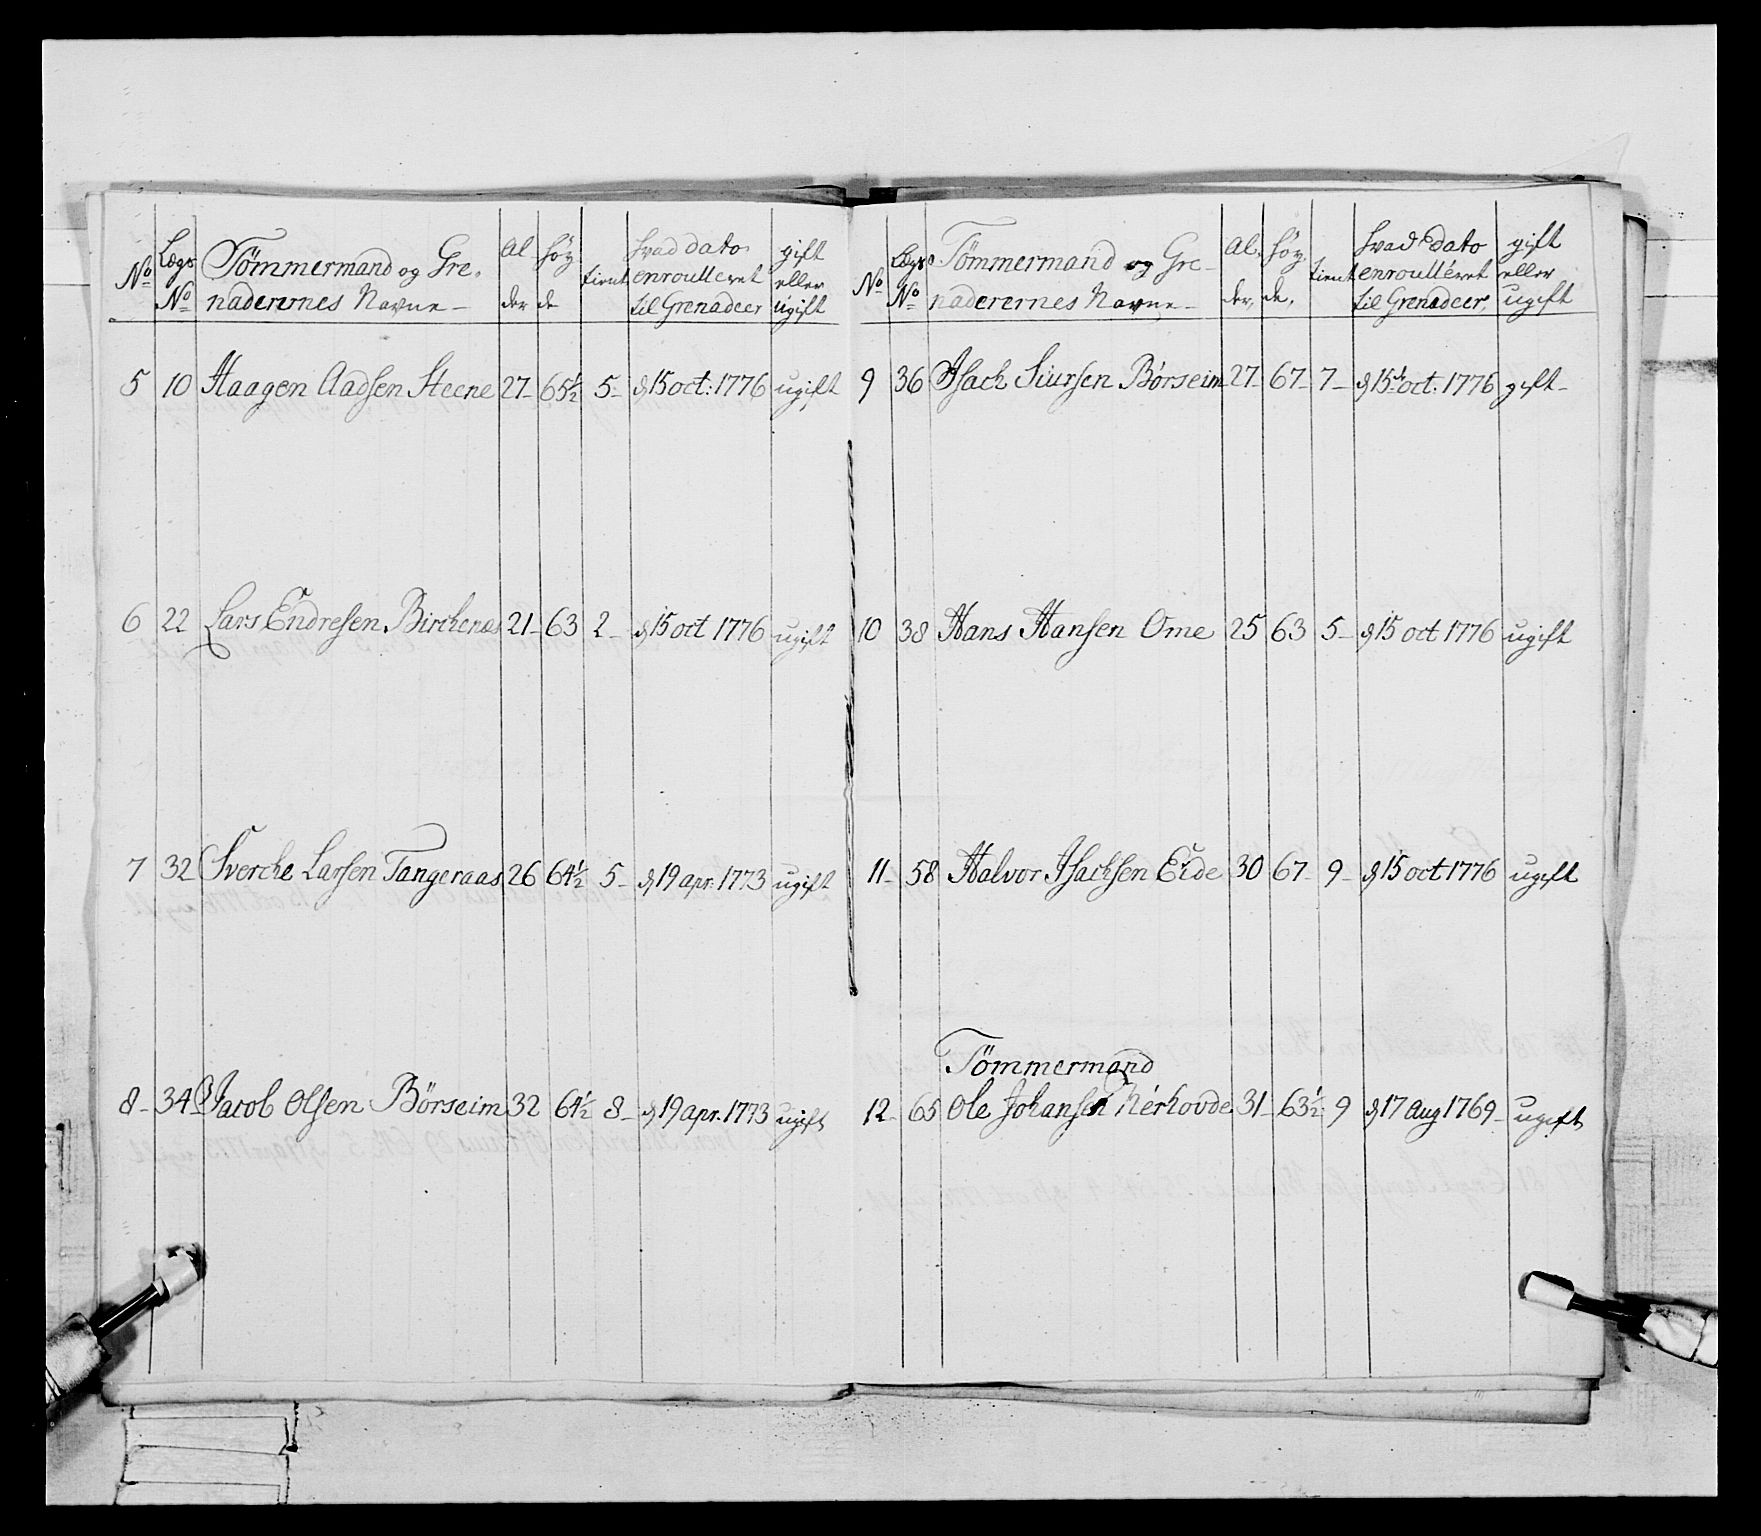 No Lægs No Tömmermand og Gre- naderernes Navne – Al der höy de tient hvad dato enroulleret til Grenadeer gift eller ugift
5 10 Haagen Aadsen Steene 27– 65½ 5– d 15 oct: 1776 ugift
6 22 Lars Endresen Birchenæs 21– 63 2– d 15 oct 1776 ugift
7 32 Sverche Larsen Tangeraas 26 64½ 5– d 19 apr: 1773 ugift
8– 34 Jacob Olsen Börseim 32 64½ 8– d 19 apr. 1773 ugift
No Lægs No Tömmermand og Gre- naderernes Navne – Al. der, höy. de, tient hvad dato enroulléret til Grenadeer, gift eller ugift
9 36 Isach Siursen Börseim 27– 67– 7– d 15 oct: 1776 gift–
10 38 Hans Hansen Ome 25 63 5– d 15 oct 1776 ugift
11– 58 Halvor Isachsen Eide 30 67– 9– d 15 oct 1776 ugift
Tömmermand
12– 65 Ole Johansen Nérhovde 31– 63½ 9 d 17 Aug 1769– ugift